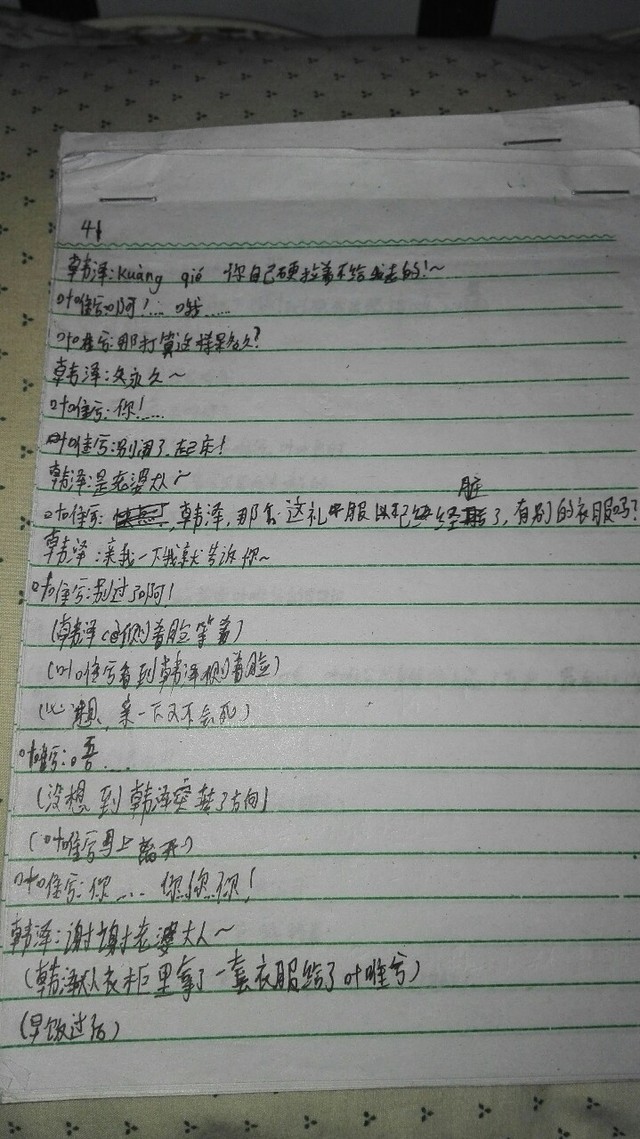 41
韩泽:kuàng qiě 你自己硬拉着不给我走的!~
叶唯兮:啊!... 哦......
叶唯兮:那打算这样呆多久?
韩泽:久永久~
叶唯兮:你!....
叶唯兮:别闹了,起床!
韩泽:是老婆大人~
叶唯兮:韩泽,那么这礼服已经脏了,有别的衣服吗?
韩泽:亲我一下我就告诉你~
叶唯兮:别过了啊!
(韩泽侧着脸等着)
(叶唯兮看到韩泽侧着脸)
(心想,亲一下又不会死)
叶唯兮:唔....
(没想到韩泽突转了方向)
(叶唯兮马上离开)
叶唯兮:你.... 你你你!
韩泽:谢谢老婆大人~
(韩泽从衣柜里拿了一套衣服给了叶唯兮)
(早饭过后)